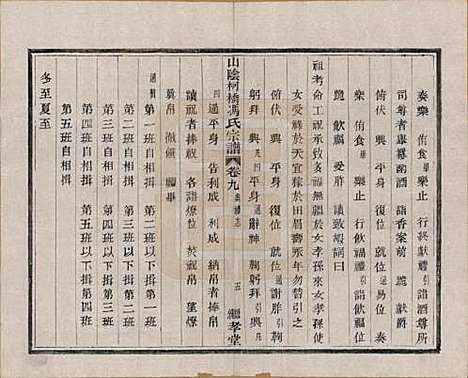 奏樂 侑食畢 樂止 行終獻禮引 詣酒尊所
司尊者舉冪酌酒 詣香案前 跪 獻爵
俯伏 興 平身 復位 就位通 奏
樂 侑食畢 樂止 飲福禮引 詣飲福位
跪 飲福酒 受胙 讀致嘏詞曰
祖考命工祝承致多福無疆於女孝孫來女孝孫使
女受祿於天宜稼於田眉壽永年勿替引之
俯伏 興 平身 復位 就位通 謝胙引 鞠
躬拜 興凡四 平身通 辭神 鞠躬拜引 興凡
四 平身 告利成 利成 納帛 讀祝者捧
祝 司帛者捧帛 各詣燎位 焚祝帛 望燎
畢
山陰柯橋馮氏宗譜 卷九 五 繼孝堂
徹饌 禮畢
第一班自相揖 第二班以下揖第一班
第二班自相揖 第三班以下揖第二班
第三班自相揖 第四班以下揖第三班
第四班自相揖 第五班以下揖第四班
第五班自相揖
冬至夏至